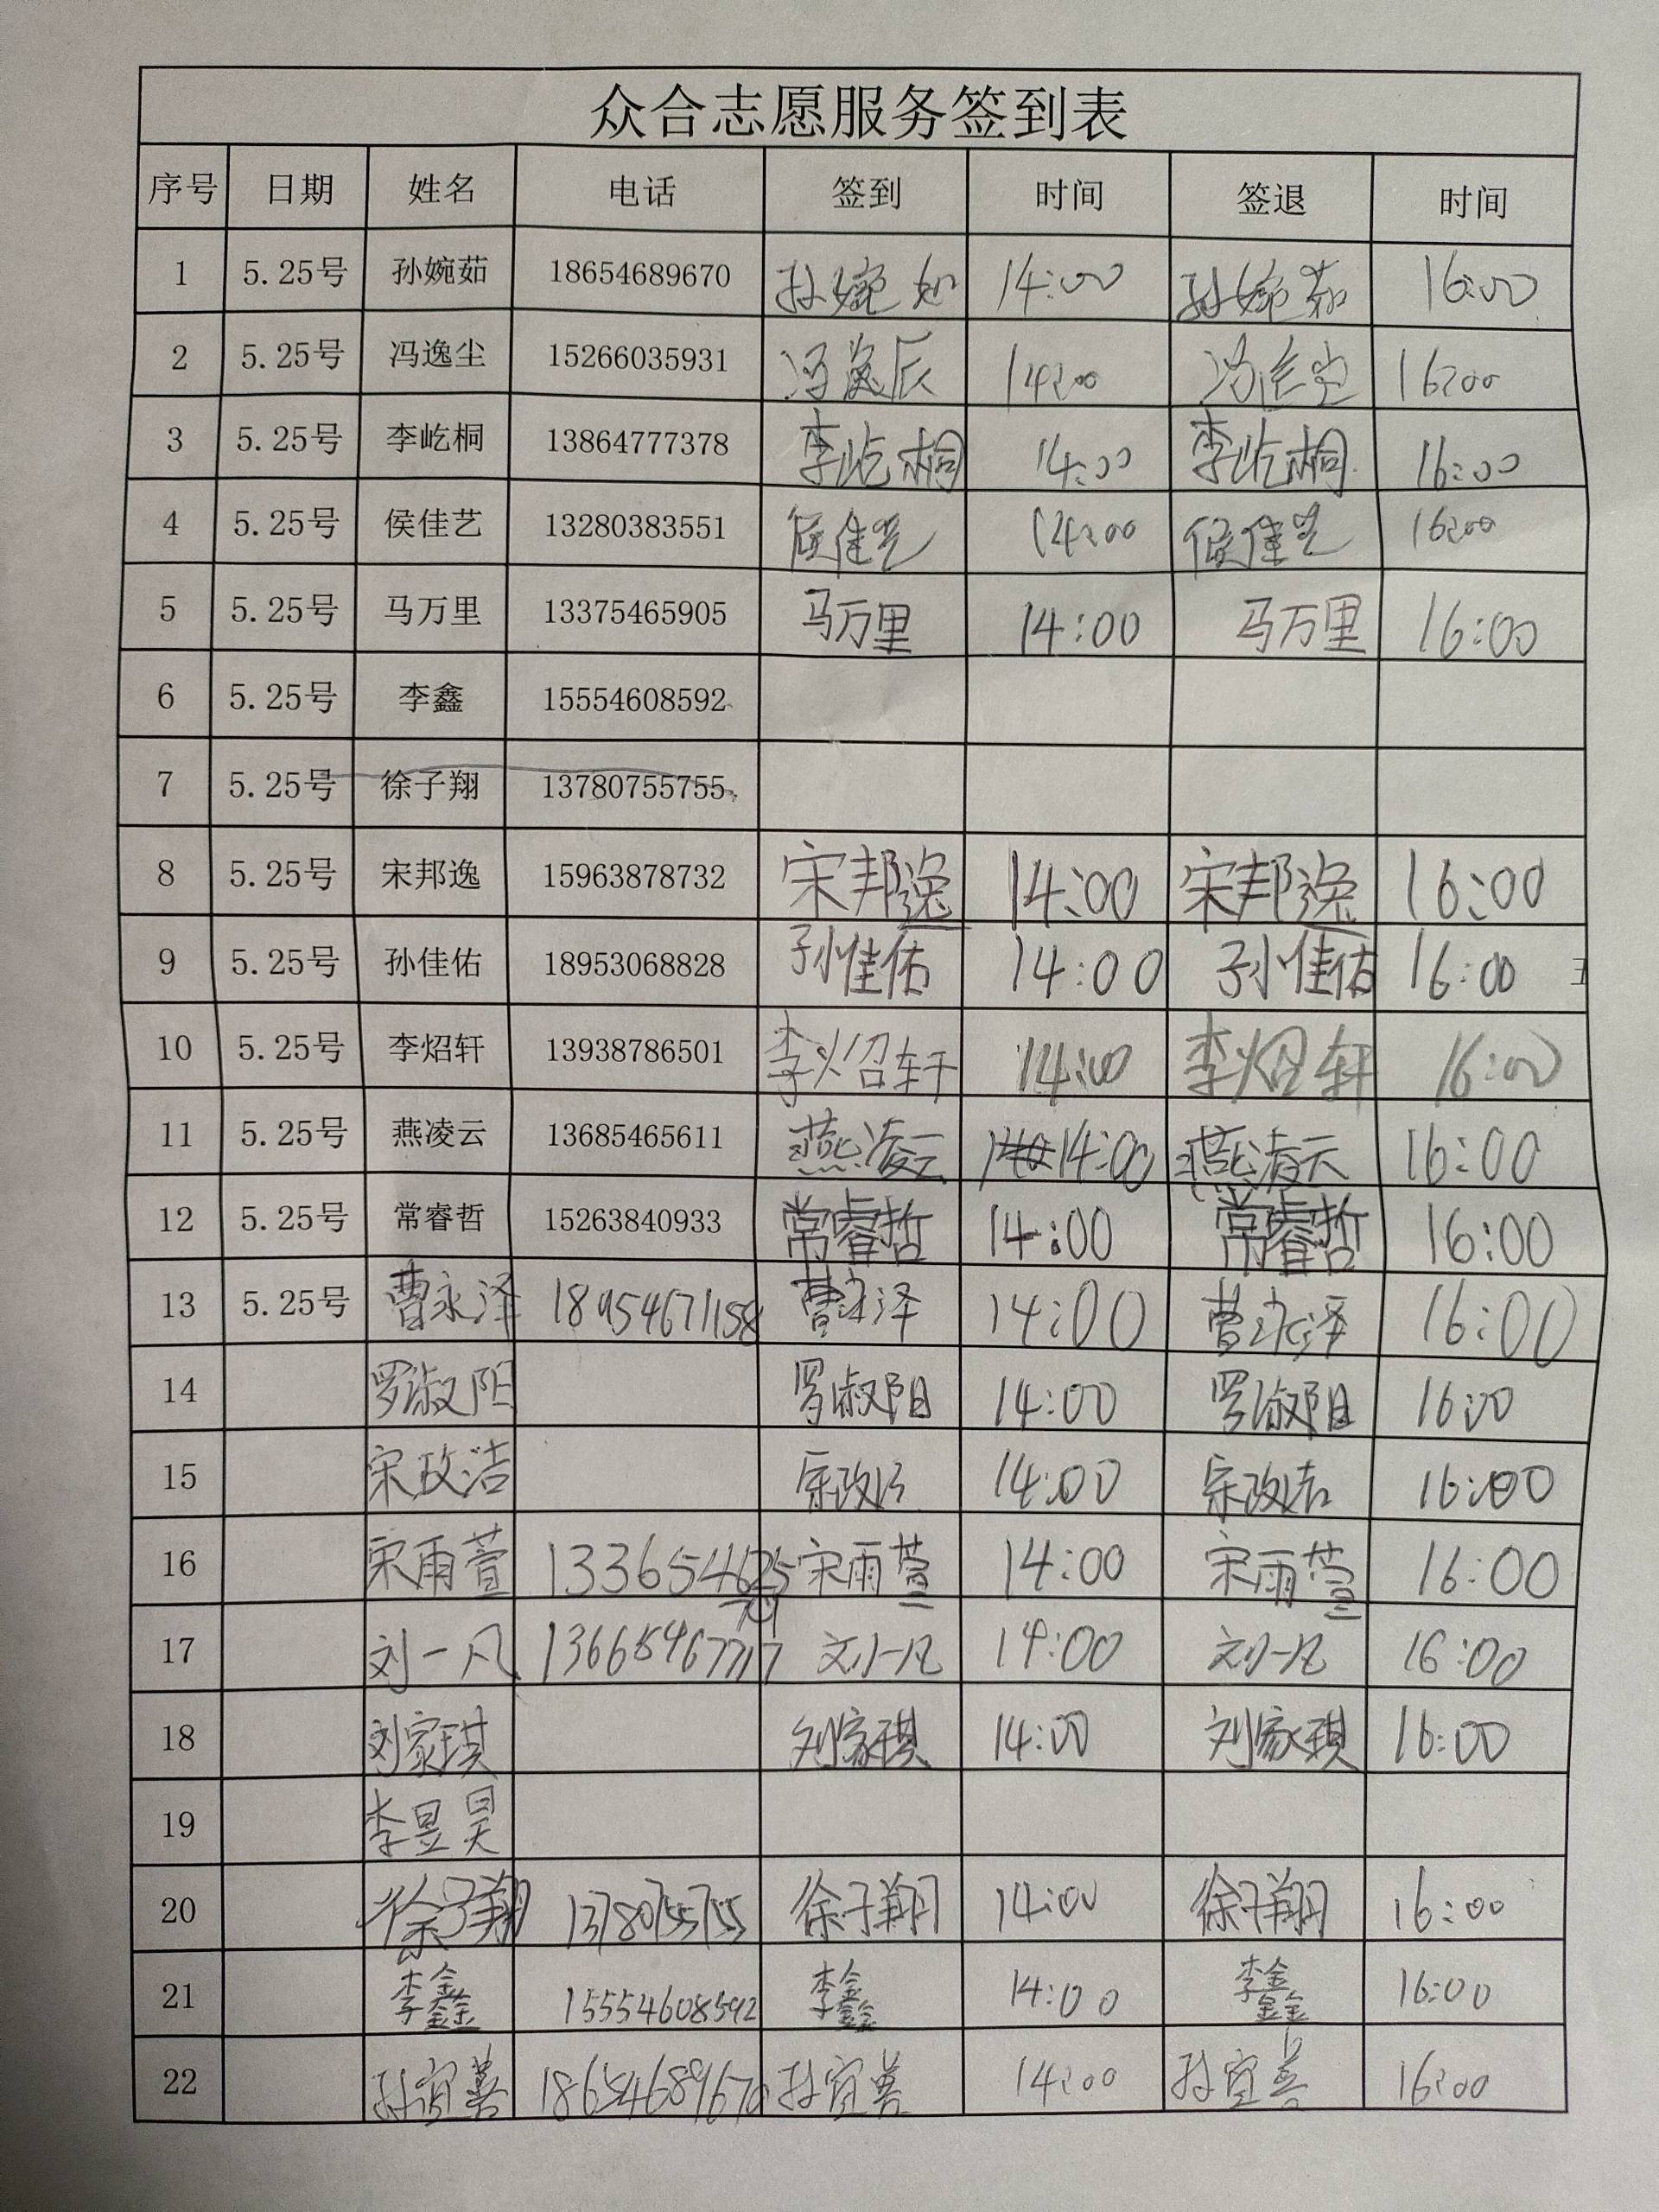 众合志愿服务签到表
序号 日期 姓名 电话 签到 时间 签退 时间
1 5.25号 孙婉茹 18654689670 孙婉如 14:00 孙婉茹 16:00
2 5.25号 冯逸尘 15266035931 冯逸辰 14:00 冯逸尘 16:00
3 5.25号 李屹桐 13864777378 李屹桐 14:00 李屹桐 16:00
4 5.25号 侯佳艺 13280383551 侯佳艺 14:00 侯佳艺 16:00
5 5.25号 马万里 13375465905 马万里 14:00 马万里 16:00
6 5.25号 李鑫 15554608592
7 5.25号 徐子翔 13780755755
8 5.25号 宋邦逸 15963878732 宋邦逸 14:00 宋邦逸 16:00
9 5.25号 孙佳佑 18953068828 孙佳佑 14:00 孙佳佑 16:00
10 5.25号 李炤轩 13938786501 李炤轩 14:00 李炤轩 16:00
11 5.25号 燕凌云 13685465611 燕凌云 14:00 燕凌云 16:00
12 5.25号 常睿哲 15263840933 常睿哲 14:00 常睿哲 16:00
13 5.25号 曹永泽 18954671158 曹永泽 14:00 曹永泽 16:00
14 罗淑阳 罗淑阳 14:00 罗淑阳 16:00
15 宋政洁 宋政洁 14:00 宋政洁 16:00
16 宋雨萱 宋雨萱 14:00 宋雨萱 16:00
17 刘一凡 刘一凡 14:00 刘一凡 16:00
18 刘家琪 刘家琪 14:00 刘家琪 16:00
19 李昱昊
20 徐子翔 13780755755 徐子翔 14:00 徐子翔 16:00
21 李鑫 15554608592 李鑫 14:00 李鑫 16:00
22 孙宜善 18654689670 孙宜善 14:00 孙宜善 16:00